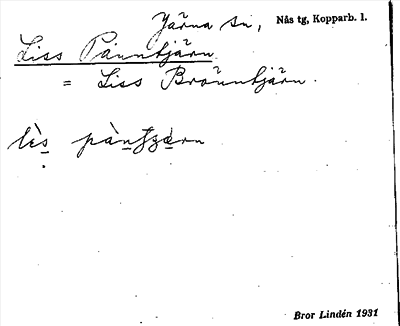 Järna sn, Nås tg, Kopparb. l.
Liss Pånntjärn
= Liss Brounntjärn.
Bror Lindén 1931